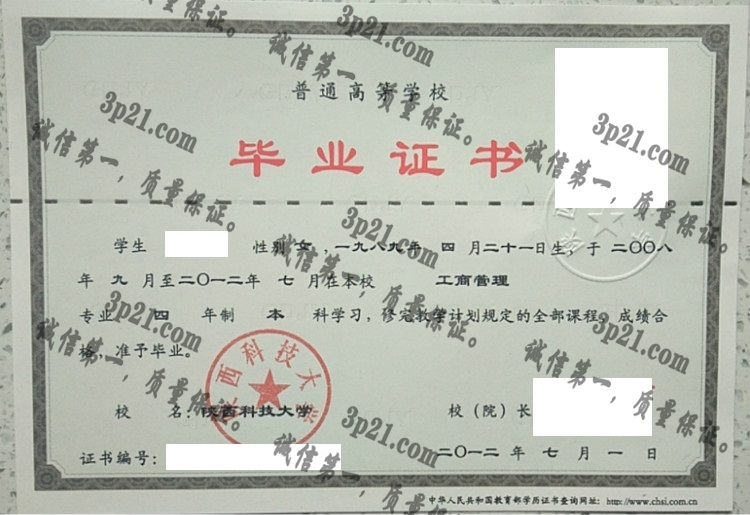 普通高等学校
毕业证书
学生 性别 女，一九八九年 四 月二十一日生，于 二〇〇八
年 九 月至二〇一二年 七 月在本校 工商管理
专业 四 年制 本 科学习，修完教学计划规定的全部课程，成绩合
格，准予毕业。
校 名：陕西科技大学
校（院）长
证书编号：
二〇一二年 七 月 一 日
中华人民共和国教育部学历证书查询网址：http://www.chsi.com.cn
陕西科技大学
3p21.com
诚信第一，质量保证。
3p21.com
诚信第一，质量保证。
3p21.com
诚信第一，质量保证。
3p21.com
诚信第一，质量保证。
3p21.com
诚信第一，质量保证。
3p21.com
诚信第一，质量保证。
3p21.com
诚信第一，质量保证。
3p21.com
诚信第一，质量保证。